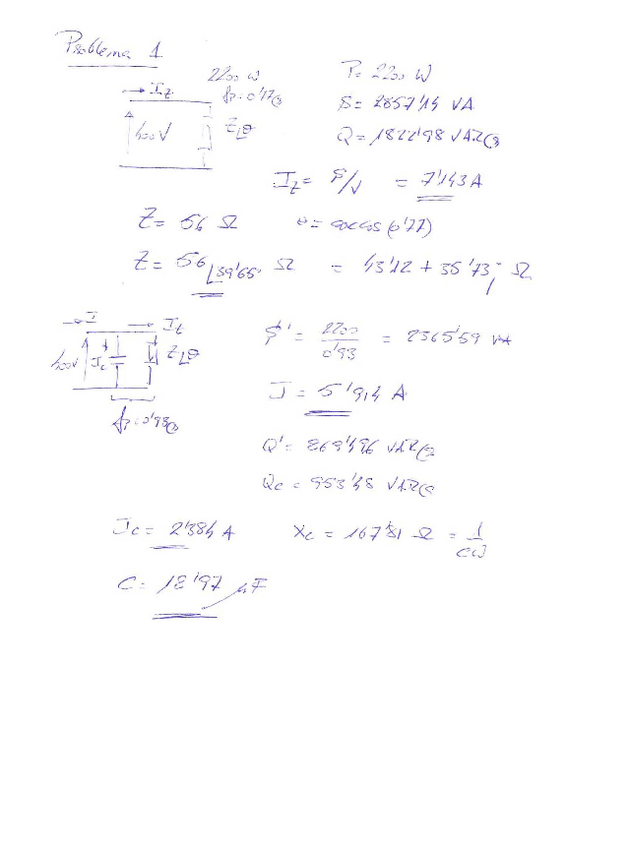 Problema 1
2200 W
fp=0'77(i)
P= 2200 W
S= 2857'14 VA
Q= 1822'98 VAR(i)
→ Iz
400V
Z∟θ
Iz= S/V = 7'143 A
Z= 56 Ω
θ= arccos(0'77)
Z= 56∟39'65° Ω = 43'12 + 35'73j Ω
→ I
→ It
400V
Ic
Z∟θ
fp=0'93(i)
S'= 2200/0'93 = 2365'59 VA
I= 5'914 A
Q'= 869'496 VAR(i)
Qc= 953'48 VAR(c)
Ic= 2'384 A
Xc= 167'81 Ω = 1/CW
C= 18'97 μF